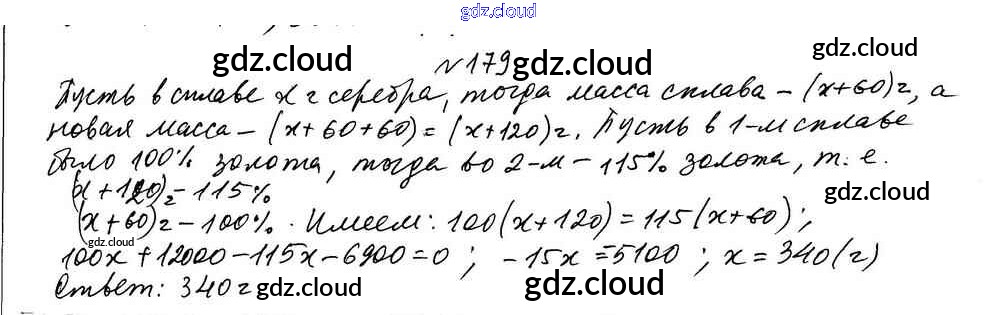 gdz.cloud
№179
gdz.cloud gdz.cloud gdz.cloud
Пусть в сплаве x г серебра, тогда масса сплава – (x+60) г, а
новая масса – (x+60+60) = (x+120) г. Пусть в 1-м сплаве
было 100% золота, тогда во 2-м – 115% золота, т. е.
gdz.cloud gdz.cloud
(x+120) г – 115%
gdz.cloud
(x+60) г – 100%. Имеем: 100(x+120) = 115(x+60);
gdz.cloud
100x+12000–115x–6900=0; -15x=-5100; x=340(г)
Ответ: 340 г
gdz.cloud gdz.cloud